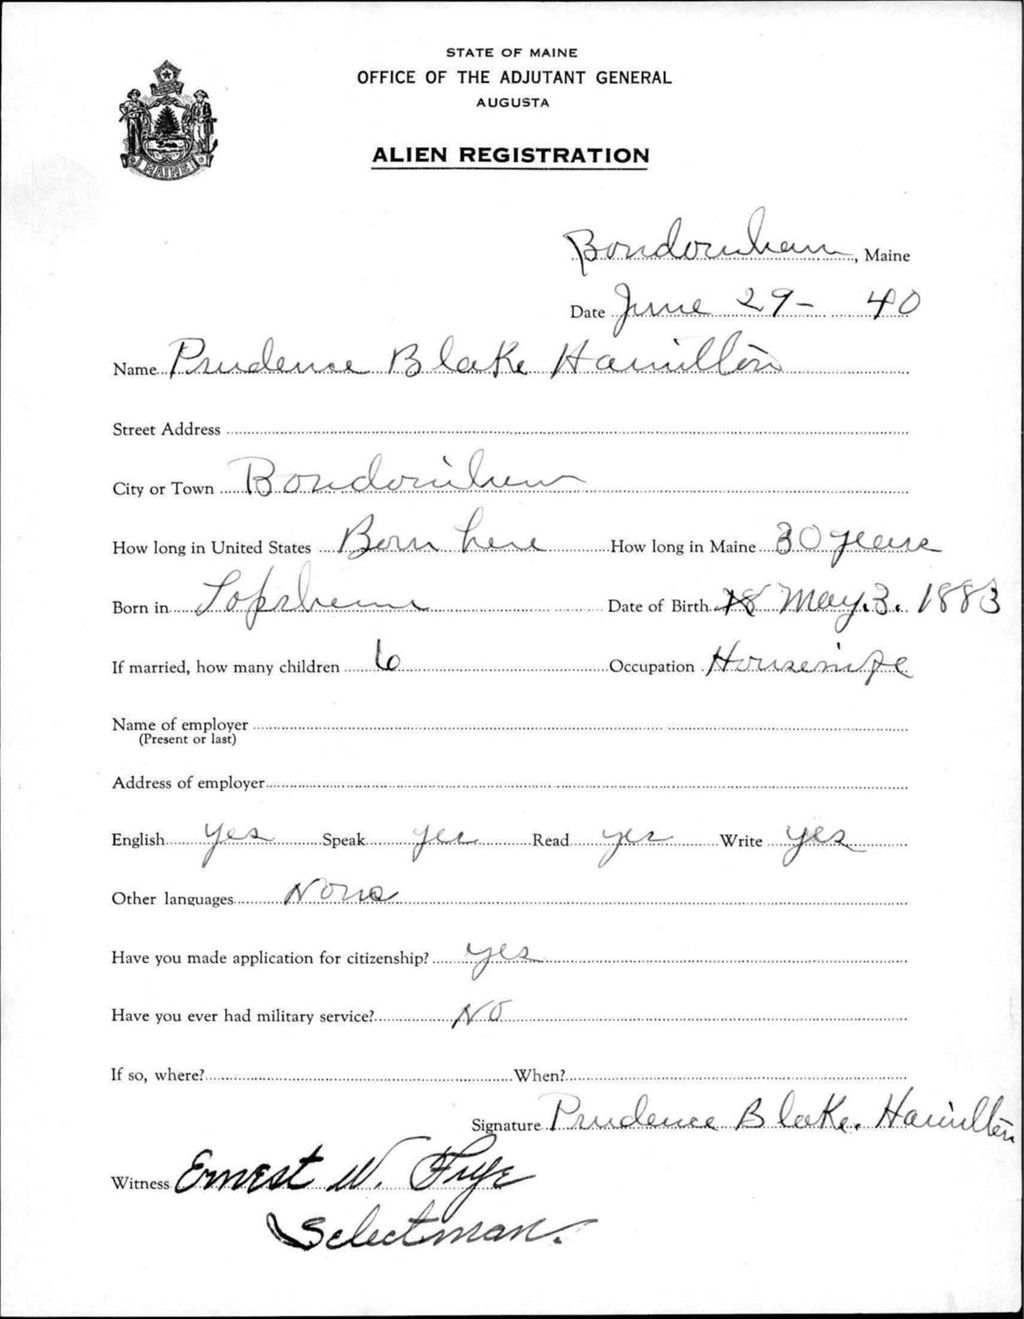 STATE OF MAINE
OFFICE OF THE ADJUTANT GENERAL
AUGUSTA
ALIEN REGISTRATION
MAINE
Bowdoinham, Maine
Date June 29- 40
Name Prudence Blake Hamilton
Street Address
City or Town Bowdoinham
How long in United States Born here How long in Maine 30 years
Born in Topsham Date of Birth 18 May. 3. 1883
If married, how many children 6 Occupation Housewife
Name of employer
(Present or last)
Address of employer
English yes Speak yes Read yes Write yes
Other languages None
Have you made application for citizenship? yes
Have you ever had military service? No
If so, where? When?
Signature Prudence Blake. Hamilton
Witness Ernest W. Frye
Selectman.